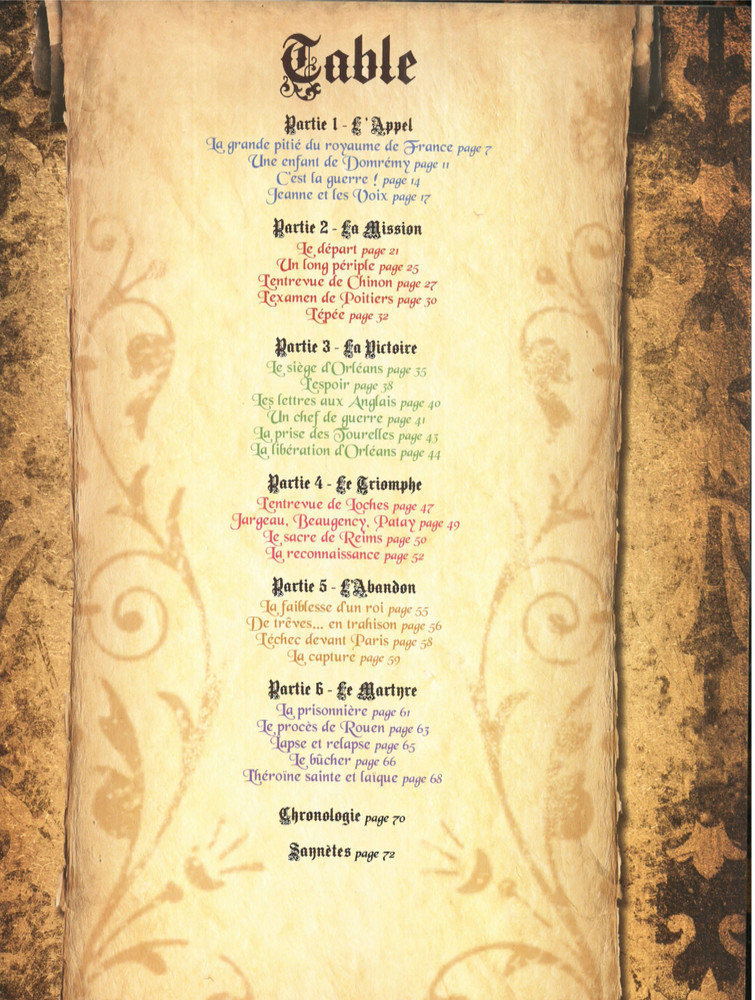 Table
Partie 1 - L'Appel
La grande pitié du royaume de France page 7
Une enfant de Domrémy page 11
C'est la guerre ! page 14
Jeanne et les Voix page 17
Partie 2 - La Mission
Le départ page 21
Un long périple page 25
L'entrevue de Chinon page 27
L'examen de Poitiers page 30
L'épée page 32
Partie 3 - La Victoire
Le siège d'Orléans page 35
L'espoir page 38
Les lettres aux Anglais page 40
Un chef de guerre page 41
La prise des Tourelles page 43
La libération d'Orléans page 44
Partie 4 - Le Triomphe
L'entrevue de Loches page 47
Jargeau, Beaugency, Patay page 49
Le sacre de Reims page 50
La reconnaissance page 52
Partie 5 - L'Abandon
La faiblesse d'un roi page 55
De trêves... en trahison page 56
L'échec devant Paris page 58
La capture page 59
Partie 6 - Le Martyre
La prisonnière page 61
Le procès de Rouen page 63
Lapse et relapse page 65
Le bûcher page 66
L'héroïne sainte et laïque page 68
Chronologie page 70
Saynètes page 72